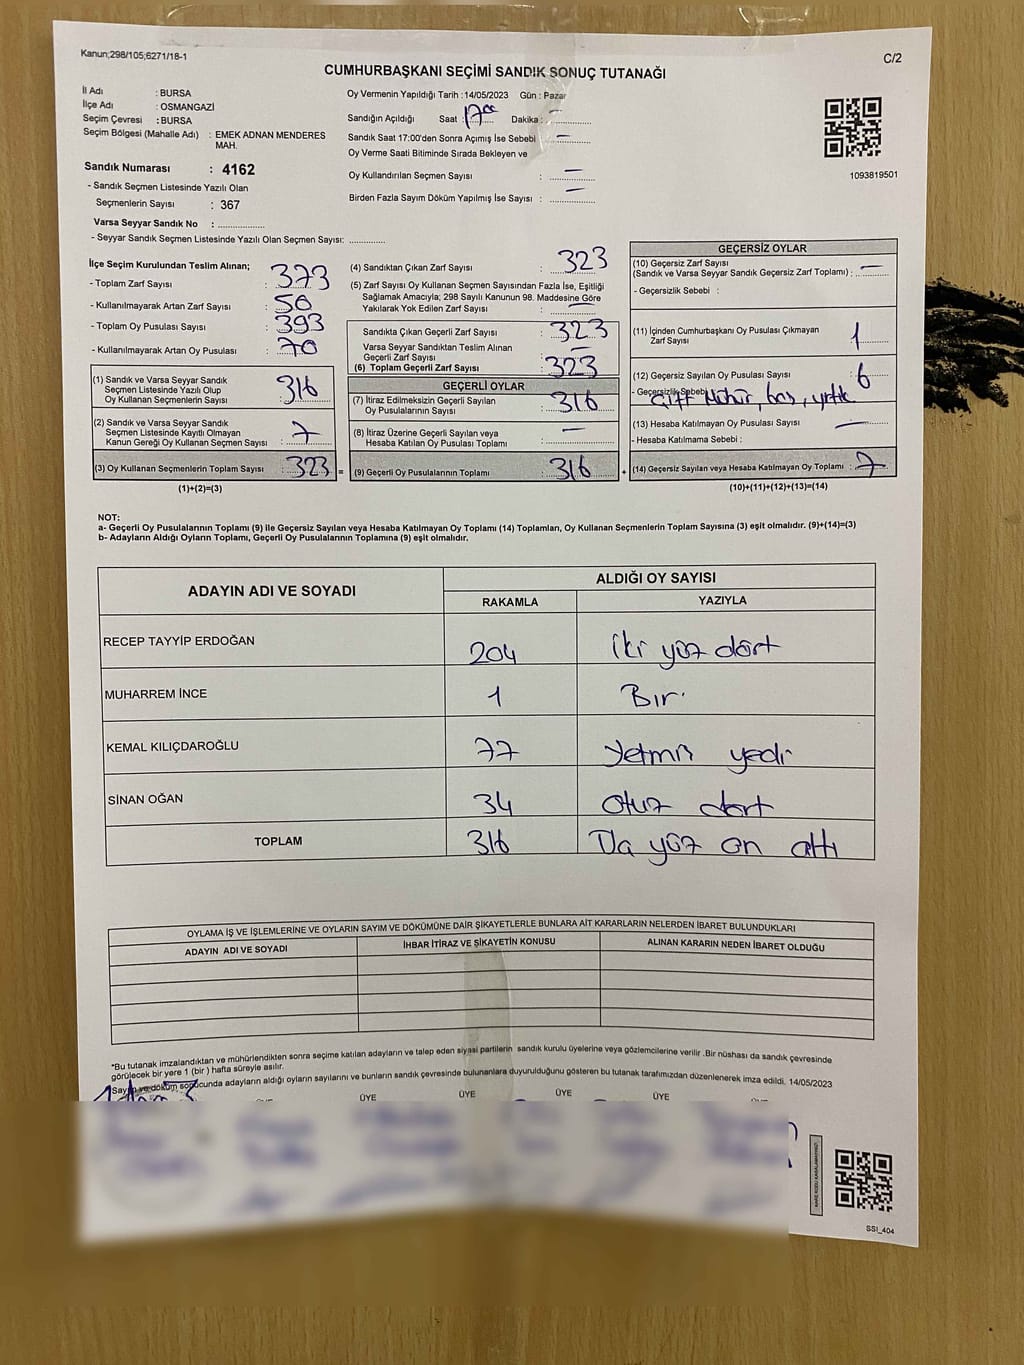 Kanun;298/105;6271/18-1
C/2
CUMHURBAŞKANI SEÇİMİ SANDIK SONUÇ TUTANAĞI
İl Adı : BURSA
İlçe Adı : OSMANGAZİ
Seçim Çevresi : BURSA
Seçim Bölgesi (Mahalle Adı) : EMEK ADNAN MENDERES MAH.
Sandık Numarası : 4162
- Sandık Seçmen Listesinde Yazılı Olan
Seçmenlerin Sayısı : 367
Varsa Seyyar Sandık No : ..................
- Seyyar Sandık Seçmen Listesinde Yazılı Olan Seçmen Sayısı: ..............
Oy Vermenin Yapıldığı Tarih :14/05/2023 Gün : Pazar
Sandığın Açıldığı Saat : 17 00 Dakika : —
Sandık Saat 17:00'den Sonra Açımış İse Sebebi : —
Oy Verme Saati Bitiminde Sırada Bekleyen ve
Oy Kullandırılan Seçmen Sayısı : —
Birden Fazla Sayım Döküm Yapılmış İse Sayısı : —
1093819501
İlçe Seçim Kurulundan Teslim Alınan;
- Toplam Zarf Sayısı : 373
- Kullanılmayarak Artan Zarf Sayısı : 50
- Toplam Oy Pusulası Sayısı : 393
- Kullanılmayarak Artan Oy Pusulası : 70
(1) Sandık ve Varsa Seyyar Sandık
Seçmen Listesinde Yazılı Olup
Oy Kullanan Seçmenlerin Sayısı : 316
(2) Sandık ve Varsa Seyyar Sandık
Seçmen Listesinde Kayıtlı Olmayan
Kanun Gereği Oy Kullanan Seçmen Sayısı : 7
(3) Oy Kullanan Seçmenlerin Toplam Sayısı : 323 =
(1)+(2)=(3)
(4) Sandıktan Çıkan Zarf Sayısı : 323
(5) Zarf Sayısı Oy Kullanan Seçmen Sayısından Fazla İse, Eşitliği
Sağlamak Amacıyla; 298 Sayılı Kanunun 98. Maddesine Göre
Yakılarak Yok Edilen Zarf Sayısı : —
Sandıkta Çıkan Geçerli Zarf Sayısı : 323
Varsa Seyyar Sandıktan Teslim Alınan
Geçerli Zarf Sayısı : —
(6) Toplam Geçerli Zarf Sayısı : 323
GEÇERLİ OYLAR
(7) İtiraz Edilmeksizin Geçerli Sayılan
Oy Pusulalarının Sayısı : 316
(8) İtiraz Üzerine Geçerli Sayılan veya
Hesaba Katılan Oy Pusulası Toplamı : —
(9) Geçerli Oy Pusulalarının Toplamı : 316 +
GEÇERSİZ OYLAR
(10) Geçersiz Zarf Sayısı
(Sandık ve Varsa Seyyar Sandık Geçersiz Zarf Toplamı) : —
- Geçersizlik Sebebi :
(11) İçinden Cumhurbaşkanı Oy Pusulası Çıkmayan
Zarf Sayısı : 1
(12) Geçersiz Sayılan Oy Pusulası Sayısı : 6
- Geçersizlik Sebebi Çift Mühür, boş, yırtık
(13) Hesaba Katılmayan Oy Pusulası Sayısı : —
- Hesaba Katılmama Sebebi :
(14) Geçersiz Sayılan veya Hesaba Katılmayan Oy Toplamı : 7
(10)+(11)+(12)+(13)=(14)
NOT:
a- Geçerli Oy Pusulalarının Toplamı (9) ile Geçersiz Sayılan veya Hesaba Katılmayan Oy Toplamı (14) Toplamları, Oy Kullanan Seçmenlerin Toplam Sayısına (3) eşit olmalıdır. (9)+(14)=(3)
b- Adayların Aldığı Oyların Toplamı, Geçerli Oy Pusulalarının Toplamına (9) eşit olmalıdır.
ADAYIN ADI VE SOYADI ALDIĞI OY SAYISI
RAKAMLA YAZIYLA
RECEP TAYYİP ERDOĞAN 204 iki yüz dört
MUHARREM İNCE 1 Bir
KEMAL KILIÇDAROĞLU 77 Yetmiş yedi
SİNAN OĞAN 34 otuz dört
TOPLAM 316 yüz on altı
OYLAMA İŞ VE İŞLEMLERİNE VE OYLARIN SAYIM VE DÖKÜMÜNE DAİR ŞİKAYETLERLE BUNLARA AİT KARARLARIN NELERDEN İBARET BULUNDUKLARI
ADAYIN ADI VE SOYADI İHBAR İTİRAZ VE ŞİKAYETİN KONUSU ALINAN KARARIN NEDEN İBARET OLDUĞU
*Bu tutanak imzalandıktan ve mühürlendikten sonra seçime katılan adayların ve talep eden siyasi partilerin sandık kurulu üyelerine veya gözlemcilerine verilir .Bir nüshası da sandık çevresinde
görülecek bir yere 1 (bir ) hafta süreyle asılır.
Sayım ve döküm sonucunda adayların aldığı oyların sayılarını ve bunların sandık çevresinde bulunanlara duyurulduğunu gösteren bu tutanak tarafımızdan düzenlenerek imza edildi. 14/05/2023
ÜYE ÜYE ÜYE ÜYE
SSI_404